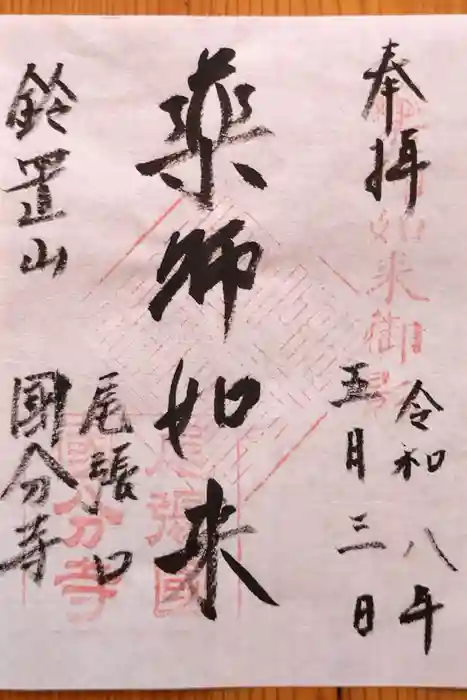 奉拝
令和八年
五月三日
薬師如来
鈴置山
尾張口
國分寺
如来御
尾張國
國分寺